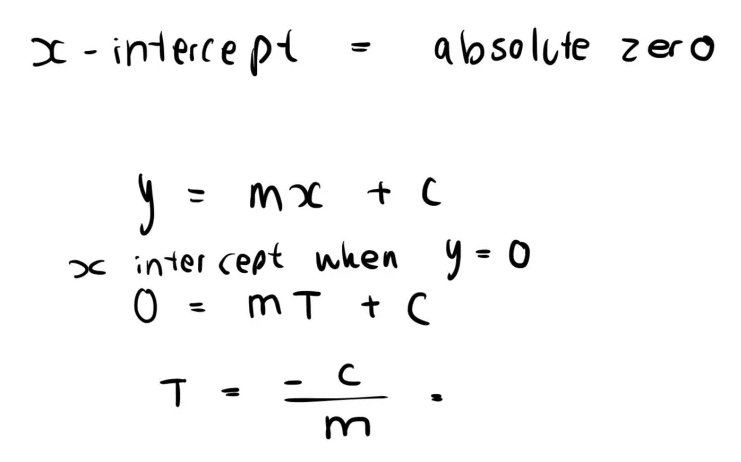 x - intercept = absolute zero
y = mx + c
x intercept when y = 0
0 = mT + c
T = - c / m .